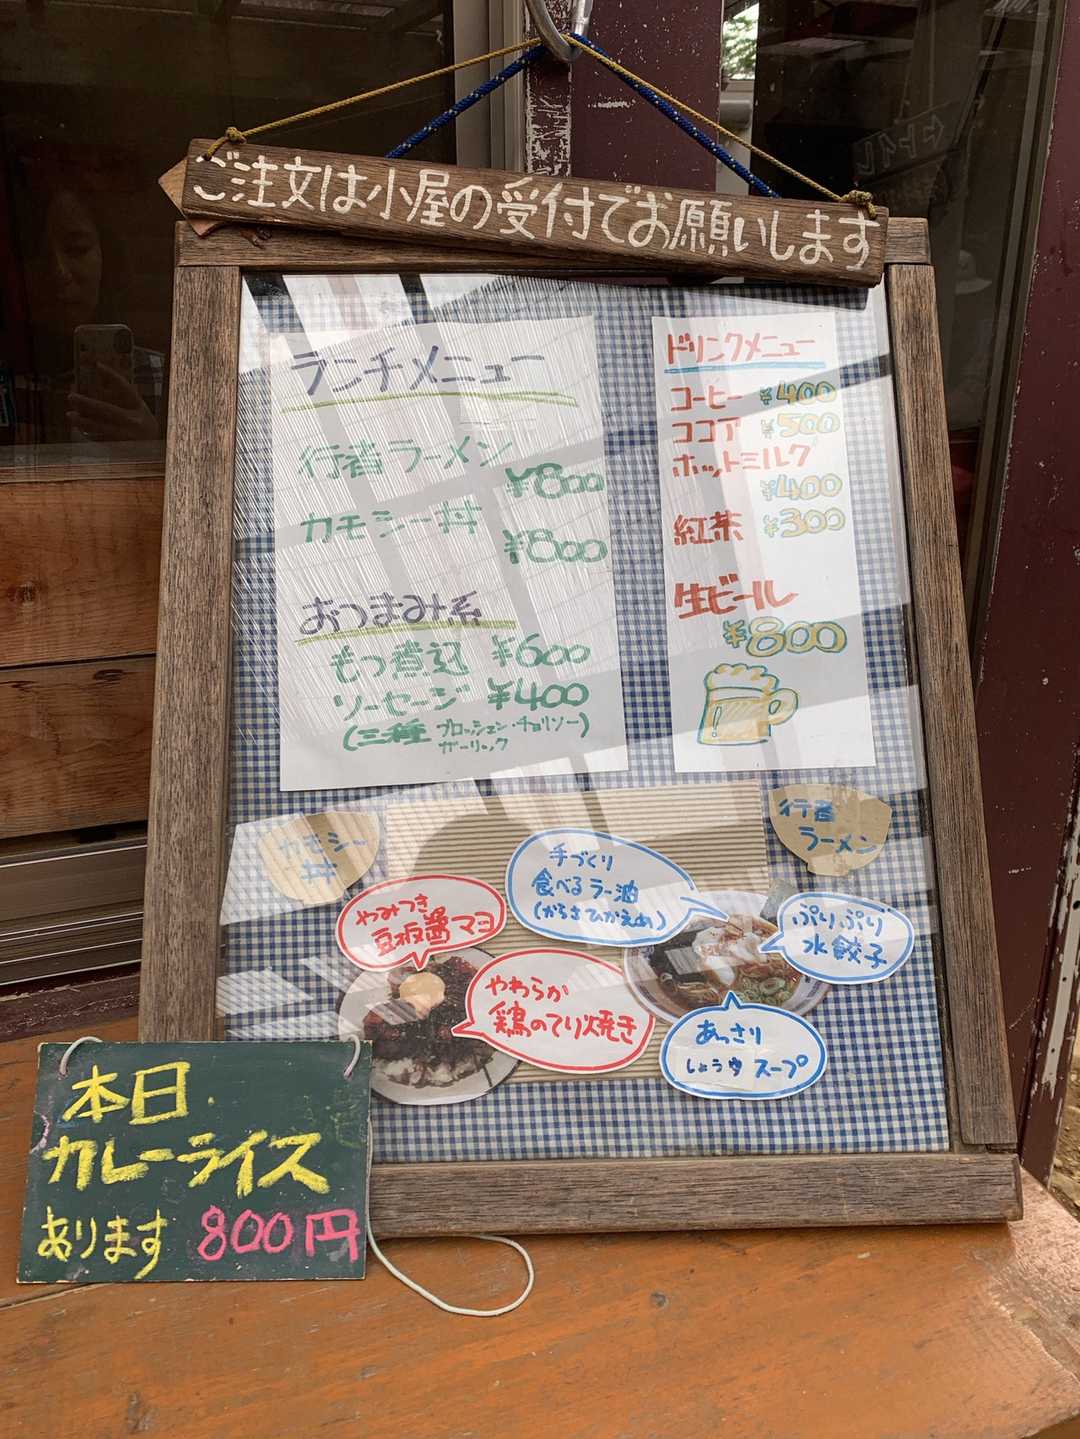 ご注文は小屋の受付でお願いします
ランチメニュー
行者ラーメン
¥800
カモシー丼
¥800
おつまみ系
もつ煮込 ¥600
ソーセージ ¥400
(三種 ブロッシェン・チョリソー)
ガーリック
ドリンクメニュー
コーヒー ¥400
ココア ¥500
ホットミルク
¥400
紅茶 ¥300
生ビール
¥800
カモシー
丼
行者
ラーメン
やみつき
豆板醤マヨ
やわらか
鶏のてり焼き
手づくり
食べるラー油
(からさひかえめ)
ぷりぷり
水餃子
あっさり
しょうゆスープ
本日
カレーライス
あります 800円